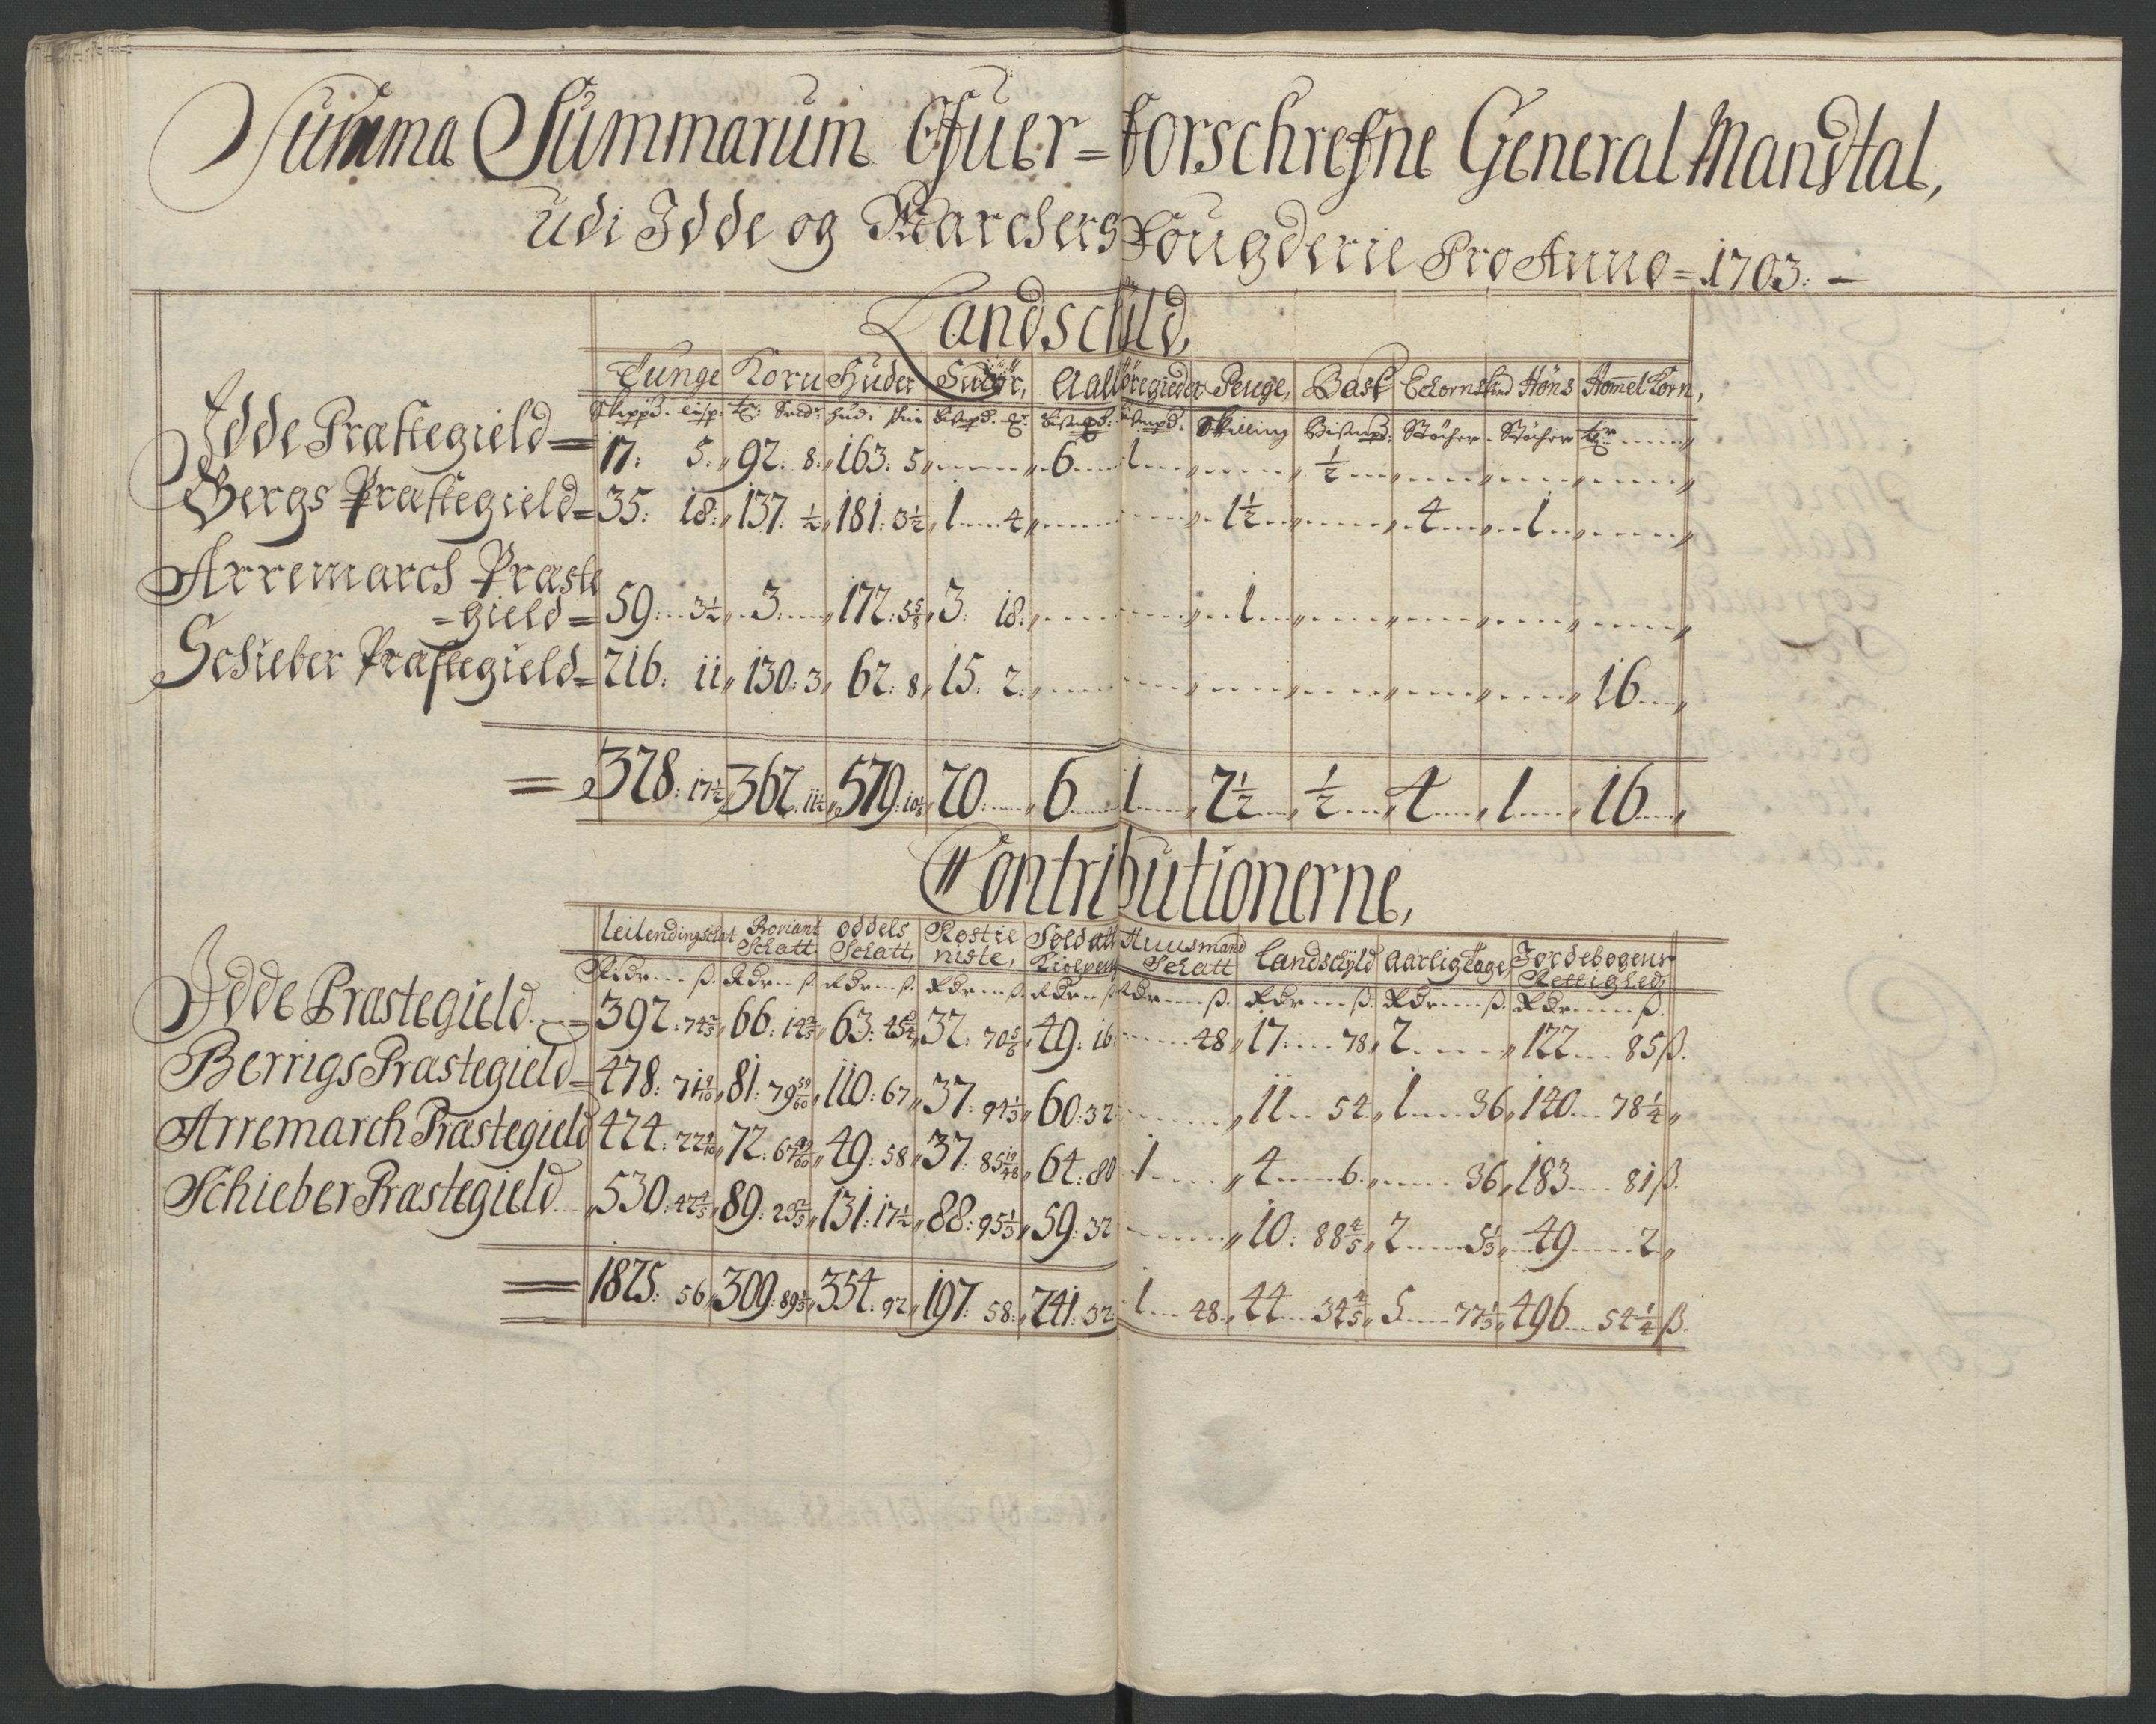 Summa Summarum Ofuer=forschrefne General Mandtal,
udi Idde og Marchers Fougderie Pro Anno=1703.
Landschÿld,
Tunge Korn Huder Smør, Aall Penge, Bast Echornskind Høns Homel Korn,
Skippd. lisp. tr: hud. skin Bismpd. Bismpd. Skilling Bismpd. Støcher. Støcher tr
Idde Præstegield= 17: 5. 92: 8. 163: 5 6 1 ½
Bergs Præstegield= 35: 18. 137: ½ 181: 3½ 1 4 1½ 4 1
Arremarch Præste
=gield= 59: 3½ 3 172: 5⅝ 3: 18. 1
Schieber Præstegield= 216: 11 130: 3 62: 8 15: 2. 16
= 328: 17½ 362: 11½ 579: 10⅛ 20 6 1 2½ ½ 4 1 16
Contributionerne,
Leilendingschat Proviant Schatt Oddels Schatt, Rostie niste, Soldatt Huusmand Schatt Landschÿld Aarlig Tage Jordebogens Rettighed,
Rdr ß. Rdr ß. Rdr ß. Rdr ß. Rdr ß Rdr ß. Rdr ß. Rdr ß. Rdr ß.
Idde Præstegield.= 392: 74⅖ 66: 14⅖ 63: 32: 70⅚ 49: 16 48 17 78 2 122 85 ß.
Berrigs Præstegield= 478: 71 9/10 81: 79 59/60 110: 67 37: 94⅓ 60: 32 11 54 1 36 140 78¼
Arremarch Præstegield 424: 22 9/10 72: 49: 58 37: 85 19/48 64: 80 1 4 6 36 183 81 ß.
Schieber Præstegield 530: 47⅘ 89: 23⅖ 131: 17½ 88: 95⅓ 59: 32 10: 88⅘ 2 5⅓ 49 2
= 1825: 56 309: 89⅓ 354: 92 197: 58. 241: 32 1 48. 44 34⅘ 5 77⅓ 496 54¼ ß.